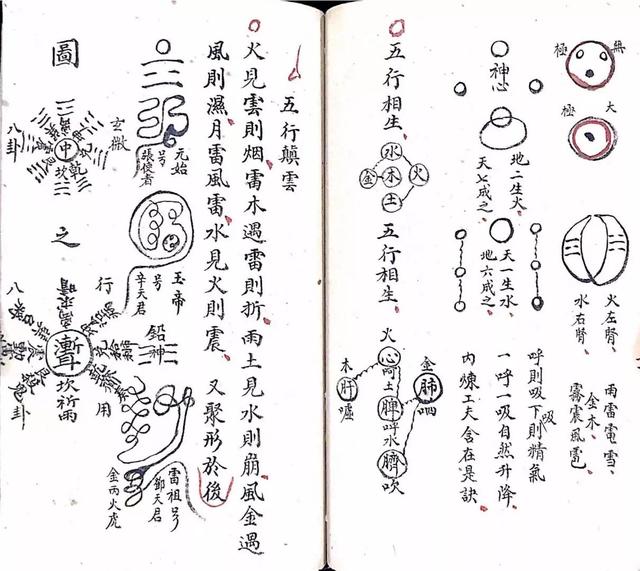 無極
太極
火左腎
水右腎
雨雷電雪
金木
霧震風雹
神心
地二生火
天七成之
天一生水
地六成之
呼則吸下則精氣
吸
一呼一吸自然升降
內煉工夫含在是訣
五行相生
水
金木火
土
五行相生
火
心呵
土
脾呼
水
腎吹
金
肺呬
木
肝噓
五行顛雲
火見雲則烟雷木遇雷則折雨土見水則崩風金遇
風則濕月雷風雷水見火則震又聚形於後
元始
號
張使者
玉帝
號
辛天君
鉛神
雷祖号
鄧天君
金丙火虎
圖
玄微
八卦
中
乾
坎
之
行
用
坎祈雨
八
卦